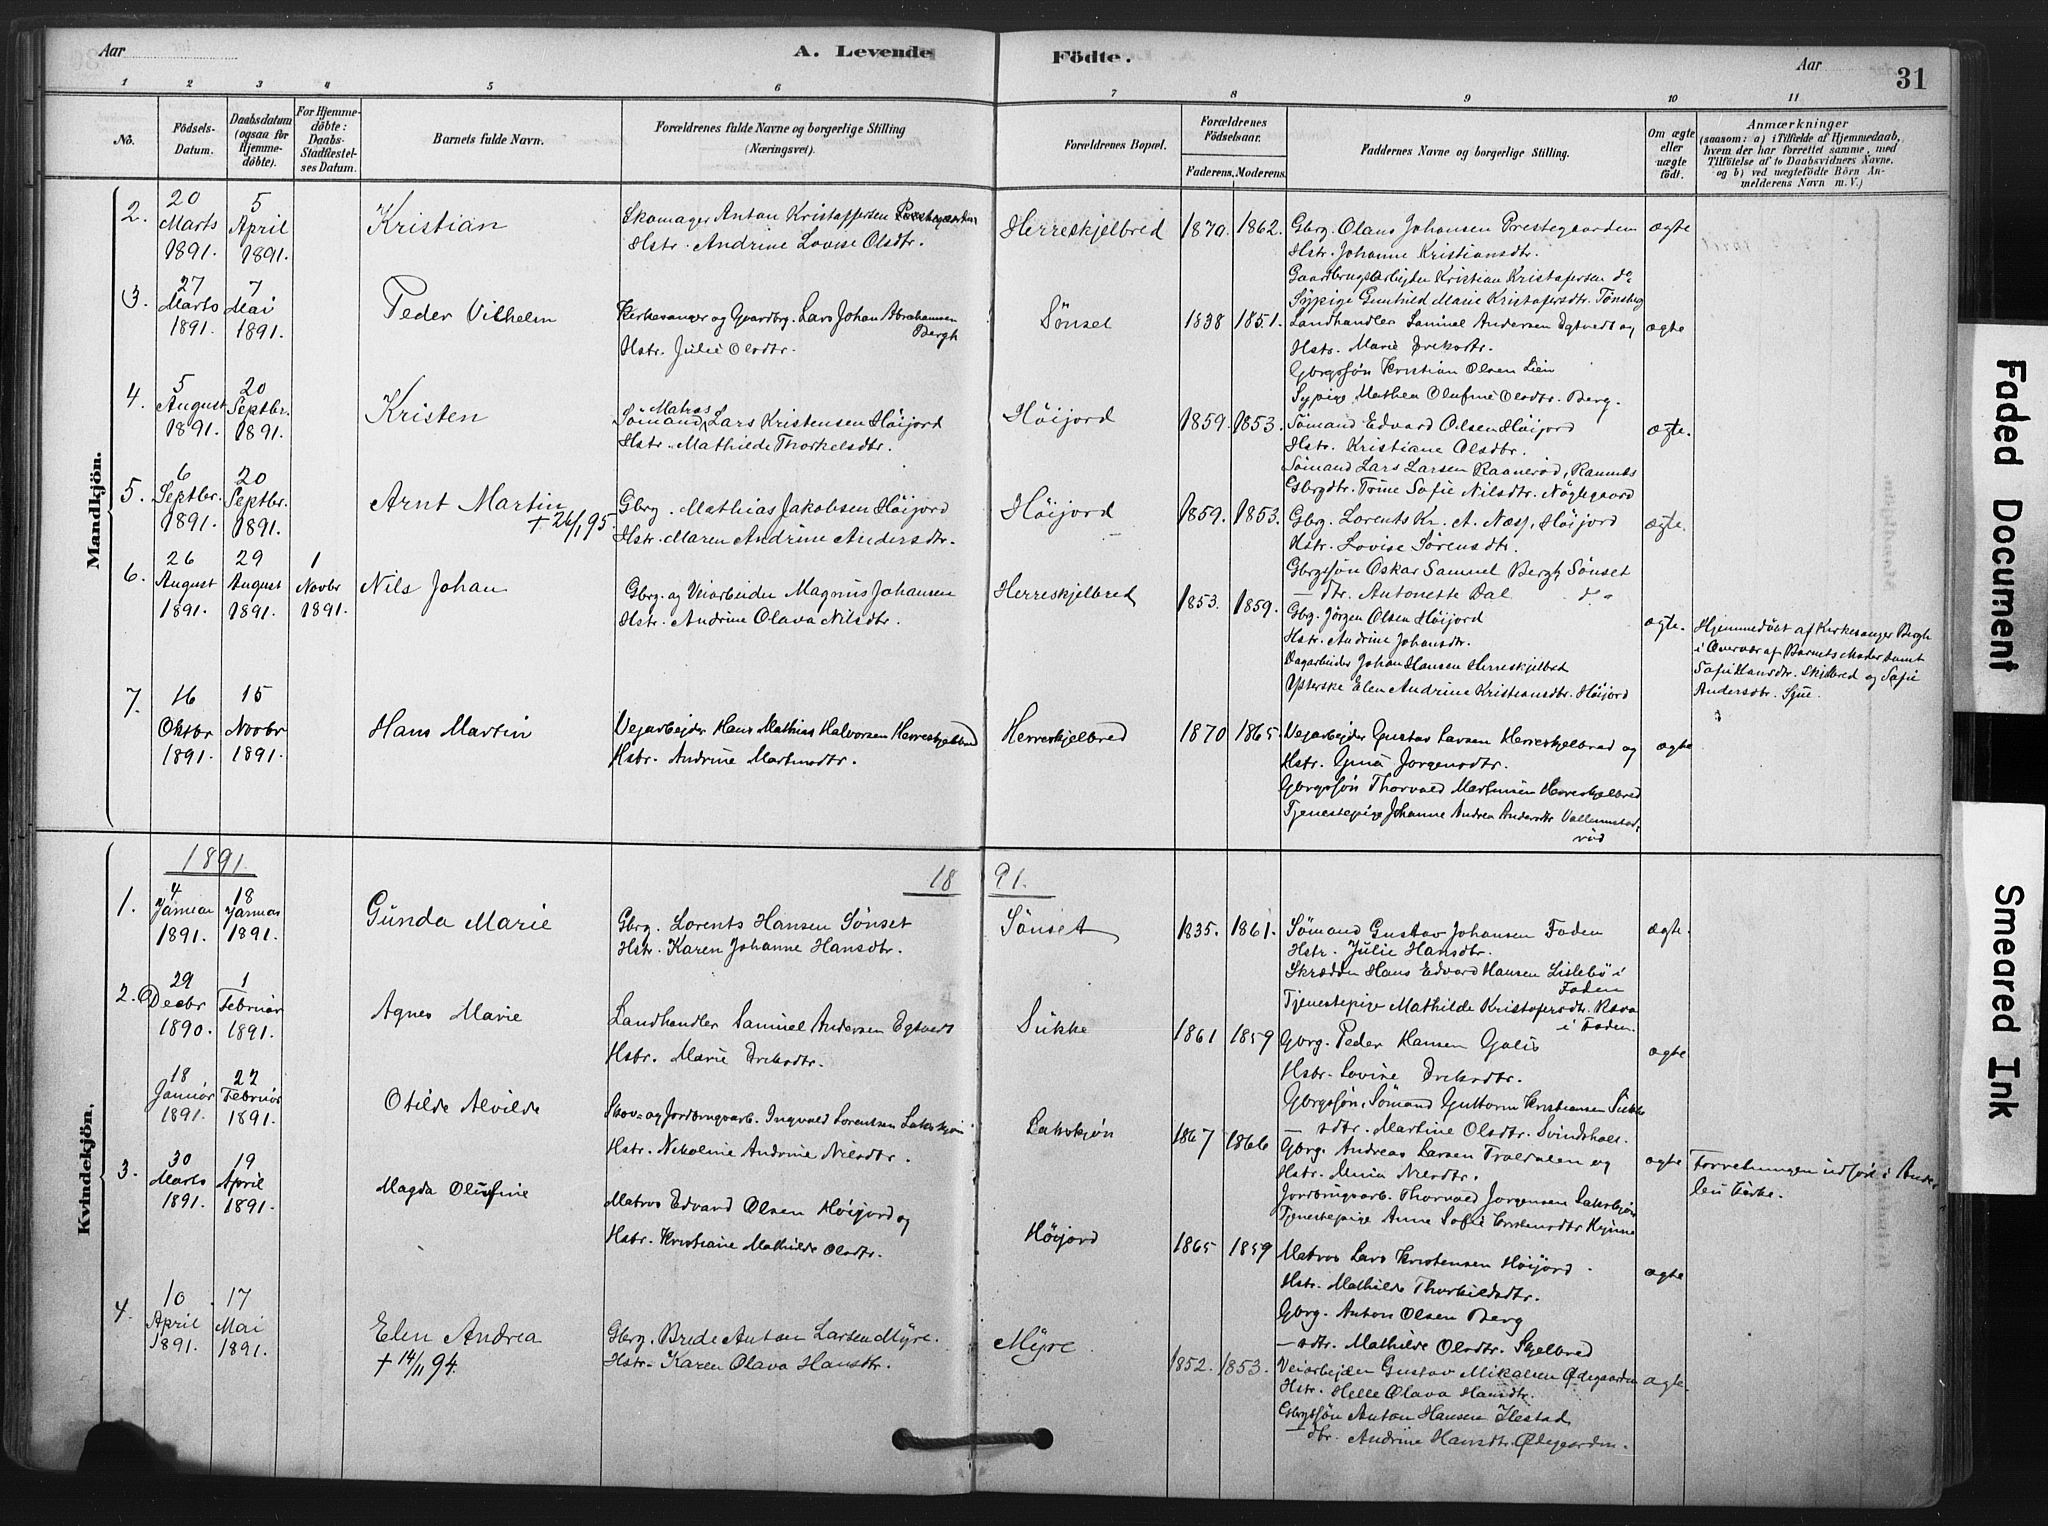 Aar
A. Levende Födte.
Aar
31
1 2 3 4 5 6 7 8 9 10 11
No.
Födsels-Datum.
Daabsdatum (ogsaa for Hjemmedöbte).
For Hjemmedöbte: Daabs-Stadfæstelses Datum.
Barnets fulde Navn.
Forældrenes fulde Navne og borgerlige Stilling (Næringsvei).
Forældrenes Bopæl.
Forældrenes Födselsaar.
Faderens. Moderens.
Faddernes Navne og borgerlige Stilling.
Om ægte eller uægte födt.
Anmærkninger
(saasom: a) i Tilfælde af Hjemmedaab, hvem der har forrettet samme, med Tilföielse af to Daabsvidners Navne. og b) ved uægtefödte Börn Anmelderens Navn m. V.)
Mandkjön.
2. 20 Marts 1891. 5 April 1891.
Kristian
Skomager Anton Kristoffersen Prestegaarden
Hstr. Andrine Lovise Olsdtr.
Herreskjelbred 1870. 1862.
Gbrg. Olaus Johansen Prestegaarden
Hstr. Johanne Kristiansdtr.
Gaardbrugsarbejder Kristian Kristofersen do
Sypige Gunhild Marie Kristofersdtr. Tønsbg
ægte
3. 27 Marts 1891. 7 Mai 1891.
Peder Vilhelm
Kirkesanger og Gaardbrg. Lars Johan Abrahamsen Bergh
Hstr. Julie Olsdtr.
Sönset 1838 1851.
Landhandler Samuel Andersen Egtvedt og
Hstr. Marie
Gbrgssøn Kristian Olsen Lien
Sypige Mathea Olufine Olsdtr. Berg.
ægte
4. 5 August 1891. 20 Septbr. 1891.
Kristen
Matros
Sømand, Lars Kristensen Høijord
Hstr. Mathilde Thorkelsdtr.
Høijord 1859. 1853.
Sømand Edvard Olsen Høijord
Hstr. Kristiane Olsdtr.
Sømand Lars Larsen Raanerød, Ramnæs
Gbrgdtr. Trine Sofie Nilsdtr. Nøglegaard
ægte.
5. 6 Septbr. 1891. 20 Septbr. 1891.
Arnt Martin
+ 26/1 95.
Gbrg. Mathias Jakobsen Høijord
Hstr. Maren Andrine Andersdtr.
Høijord 1859. 1853.
Gbrg. Lorents Kr. A. Næss, Høijord
Hstr. Lovise Sørensdtr.
Gbrgssøn Oskar Samuel Bergh Sønset
— dtr. Antonette Dal do
ægte.
6. 26 August 1891. 29 August 1891. 1 Novbr 1891.
Nils Johan
Gbrg. og Veiarbeider Magnus Johansen
Hstr. Andrine Olava Nilsdtr.
Herreskjelbred 1853. 1859.
Gbrg. Jörgen Olsen Höijord
Hstr. Andrine Johansdtr.
Dagarbeider Johan Hansen Herreskjelbred
Ysterske Elen Andrine Kristiansdtr. Höijord
ægte.
Hjemmedøbt af Kirkesanger Bergh
i Overvær af Barnets Moder samt
Sofie Hansdtr. Skjelbred og Sofie
Andersdtr. Sjue.
7. 16 Oktbr 1891. 15 Novbr 1891.
Hans Martin
Vejarbejder Hans Mathias Halvorsen Herreskjelbred
Hstr. Andrine Martinsdtr.
Herreskjelbred 1870 1865.
Vejarbejder Gustav Larsen Herreskjelbred og
Hstr. Gina Jørgensdtr.
Gbrgssøn Thorvald Martinsen Herreskjelbred
Tjenestepige Johanne Andrea Andersdtr
ægte
Kvindekjön.
1891.
18 91.
1. 4 Januar 1891. 18 Januar 1891.
Gunda Marie
Gbrg. Lorents Hansen Sønset
Hstr. Karen Johanne Hansdtr.
Sønset 1835. 1861.
Sømand Gustav Johansen Foden
Hstr. Julie Hansdtr.
Skrædder Hans Edvard Hansen Lislebö i Foden
Tjenestepige Mathilde Kristofersdtr. i Foden.
ægte.
2. 29 Decbr 1890. 1 Februar 1891.
Agnes Marie
Landhandler Samuel Andersen Egtvedt
Hstr. Marie
Sukke 1861 1859
Gbrg. Peder Hansen Galis
Hstr. Lovise
Gbrgssøn, Sømand Guttorm Kristiansen Sukke
— sdtr. Martine Olsdtr. Svindshol.
ægte
18 Januar 1891. 22 Februar 1891.
Otilde Alvilde
Skov- og Jordbrugsarb. Ingvald Lorentsen Lakskjøn
Hstr. Nikoline Andrine Nilsdtr.
Lakskjøn 1867 1866
Gbrg. Andreas Larsen Troldalen og
Hstr. Mina Nilsdtr.
Jordbrugsarb. Thorvald Jørgensen Lakskjøn
Tjenestepige Anne Sofie
ægte
3. 30 Marts 1891. 19 April 1891.
Magda Olufine
Matros Edvard Olsen Höijord og
Hstr. Kristiane Mathilde Olsdtr.
Höijord 1865 1859
Matros Lars Kristensen Höijord
Hstr. Mathilde Thorkildsdtr.
Gbrg. Anton Olsen Berg
— sdtr. Mathilde Olsdtr. Skjelbred
ægte
4. 10 April 1891. 17 Mai 1891.
Elen Andrea
+ 14/11 94.
Gbrg. Brede Anton Larsen Myre.
Hstr. Karen Olava Hansdtr.
Myre 1852. 1853.
Veiarbejder Gustav Mikalsen Ødegaarden
Hstr. Helle Olava Hansdtr.
Gbrgssøn Anton Hansen Ilestad
— dtr. Andrine Hansdtr. Ødegaarden.
ægte.
Faded Document
Smeared Ink